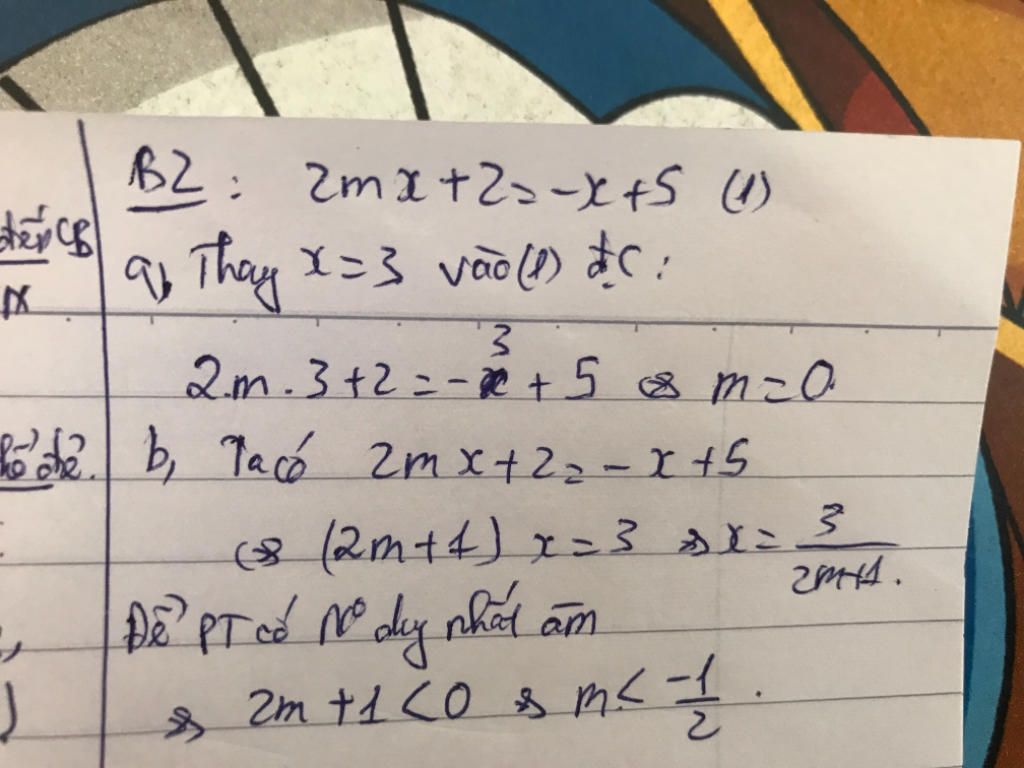 B2: 2mx+2=-x+5 (1)
a, Thay x=3 vào (1) đc:
2.m.3+2=-3+5 ⇔ m=0.
b, Ta có 2mx+2=-x+5
⇔ (2m+1) x=3 ⇔ x= 3/2m+1.
Để PT có No duy nhất âm
⇔ 2m+1<0 ⇔ m< -1/2.
CB